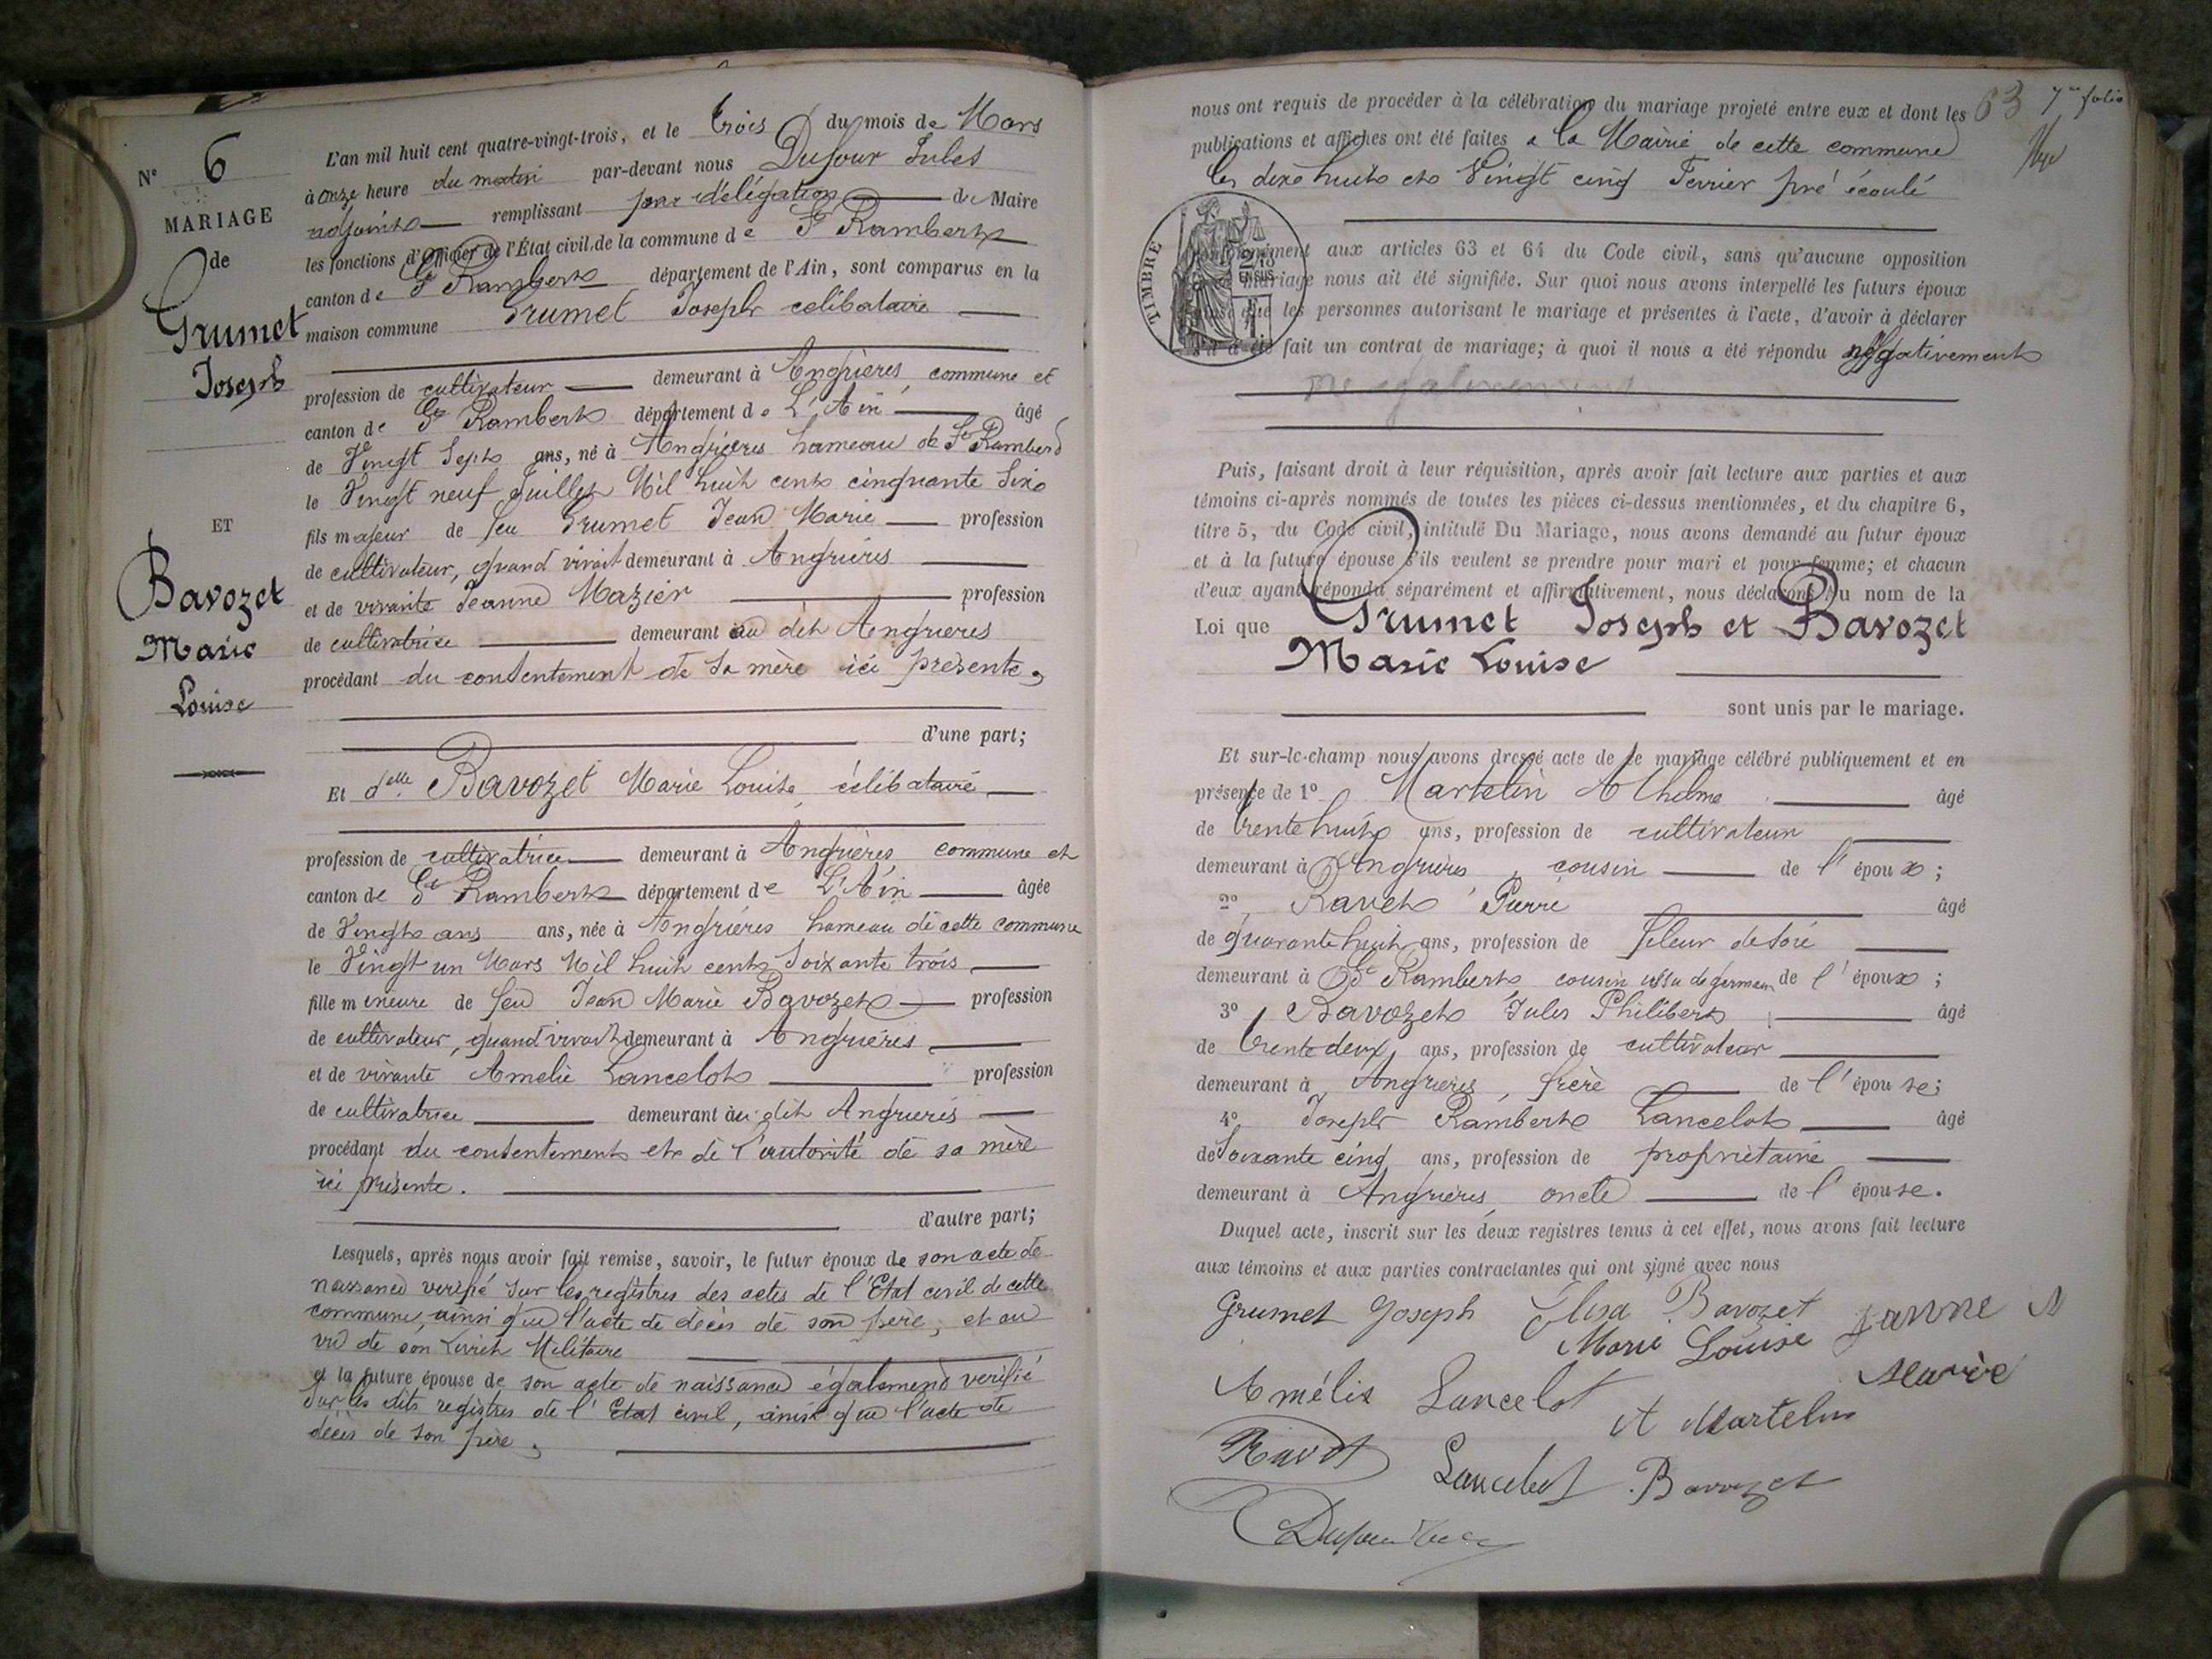 N° 6
MARIAGE
de
Grumet
Joseph
ET
Bavozet
Marie
Louise
L'an mil huit cent quatre-vingt-trois, et le trois du mois de Mars
à onze heure du matin par-devant nous Dufour Jules
adjoint remplissant par délégation de Maire
les fonctions d'Officier de l'État civil de la commune de St Rambert
canton de St Rambert département de l'Ain, sont comparus en la
maison commune Grumet Joseph celibataire
profession de cultivateur demeurant à Angrières commune et
canton de St Rambert département de L'Ain âgé
de Vingt Sept ans, né à Angrières hameau de St Rambert
le Vingt neuf Juillet Mil huit cent cinquante Six
fils majeur de feu Grumet Jean Marie profession
de cultivateur, quand vivait demeurant à Angrières
et de vivante Jeanne Mazier profession
de cultivatrice demeurant au dit Angrieres
procédant du consentement de sa mère ici présente,
d'une part;
Et delle Bavozet Marie Louise, célibataire
profession de cultivatrice demeurant à Angrières commune et
canton de St Rambert département de L'Ain âgée
de Vingt ans ans, née à Angrières hameau de cette commune
le Vingt un Mars Mil huit cent Soixante trois
fille mineure de feu Jean Marie Bavozet profession
de cultivateur, quand vivait demeurant à Angrières
et de vivante Amelie Lancelot profession
de cultivatrice demeurant au dit Angrieres
procédant du consentement et de l'autorité de sa mère
ici présente.
d'autre part;
Lesquels, après nous avoir fait remise, savoir, le futur époux de son acte de
naissance verifié sur les registres des actes de l'Etat civil de cette
commune, ainsi que l'acte de décès de son père, et au
vu de son Livret Militaire
et la future épouse de son acte de naissance également verifié
sur les dits registres de l'Etat civil, ainsi que l'acte de
décès de son père,
63 7me folio
nous ont requis de procéder à la célébration du mariage projeté entre eux et dont les
publications et affiches ont été faites a la Mairie de cette commune
les dixe huit et Vingt cinq Fevrier pré écoulé
TIMBRE
aux articles 63 et 64 du Code civil, sans qu'aucune opposition
mariage nous ait été signifiée. Sur quoi nous avons interpellé les futurs époux
que les personnes autorisant le mariage et présentes à l'acte, d'avoir à déclarer
s'il a été fait un contrat de mariage; à quoi il nous a été répondu négativement
négativement
Puis, faisant droit à leur réquisition, après avoir fait lecture aux parties et aux
témoins ci-après nommés de toutes les pièces ci-dessus mentionnées, et du chapitre 6,
titre 5, du Code civil, intitulé Du Mariage, nous avons demandé au futur époux
et à la future épouse s'ils veulent se prendre pour mari et pour femme; et chacun
d'eux ayant répondu séparément et affirmativement, nous déclarons au nom de la
Loi que Grumet Joseph et Bavozet
Marie Louise
sont unis par le mariage.
Et sur-le-champ nous avons dressé acte de ce mariage célébré publiquement et en
présence de 1° Martelin Athelme âgé
de trente huit ans, profession de cultivateur
demeurant à Angrières, cousin de l'époux;
2° Ravet Pierre âgé
de quarante huit ans, profession de fileur de soie
demeurant à St Rambert cousin issu de germain de l'époux;
3° Bavozet Jules Philibert âgé
de trente deux ans, profession de cultivateur
demeurant à Angrieres, frère de l'épouse;
4° Joseph Rambert Lancelot âgé
de Soixante cinq ans, profession de propriétaire
demeurant à Angrières, oncle de l'épouse.
Duquel acte, inscrit sur les deux registres tenus à cet effet, nous avons fait lecture
aux témoins et aux parties contractantes qui ont signé avec nous
Grumet Joseph Elisa Bavozet Janne M
Marie Louise
Amélie Lancelot A Martelin
Ravet Lancelot Bavozet
Dufour Jules